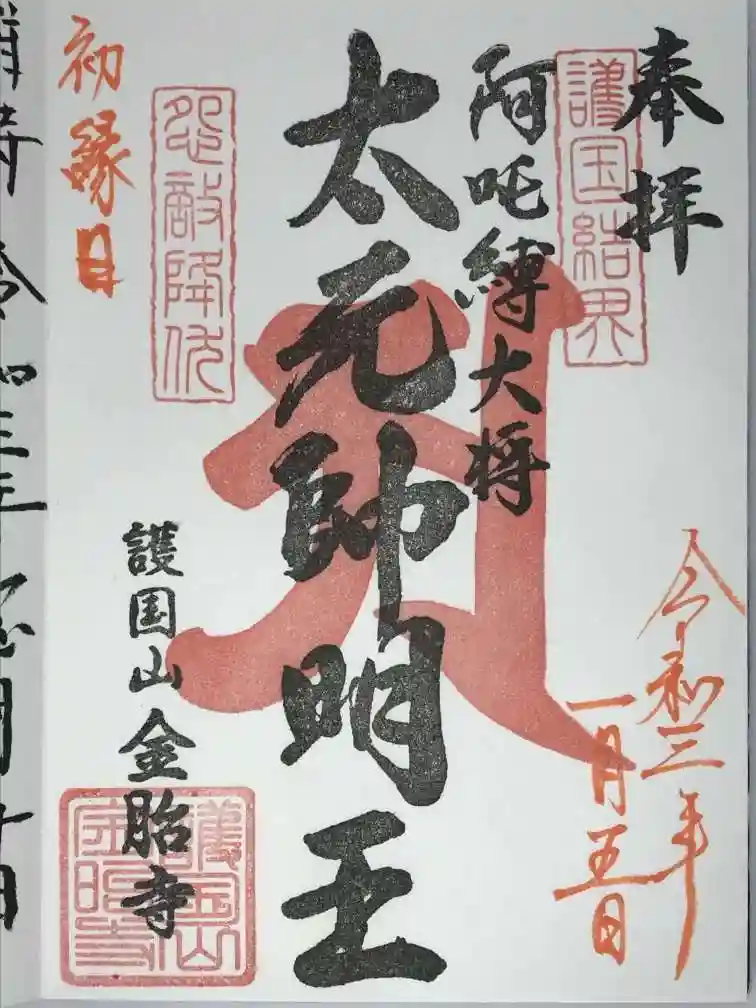 奉拝
護国結界
阿吒縛大将
太元帥明王
怨敵降伏
初縁日
護国山金胎寺
護国山
金胎寺
令和三年
一月五日